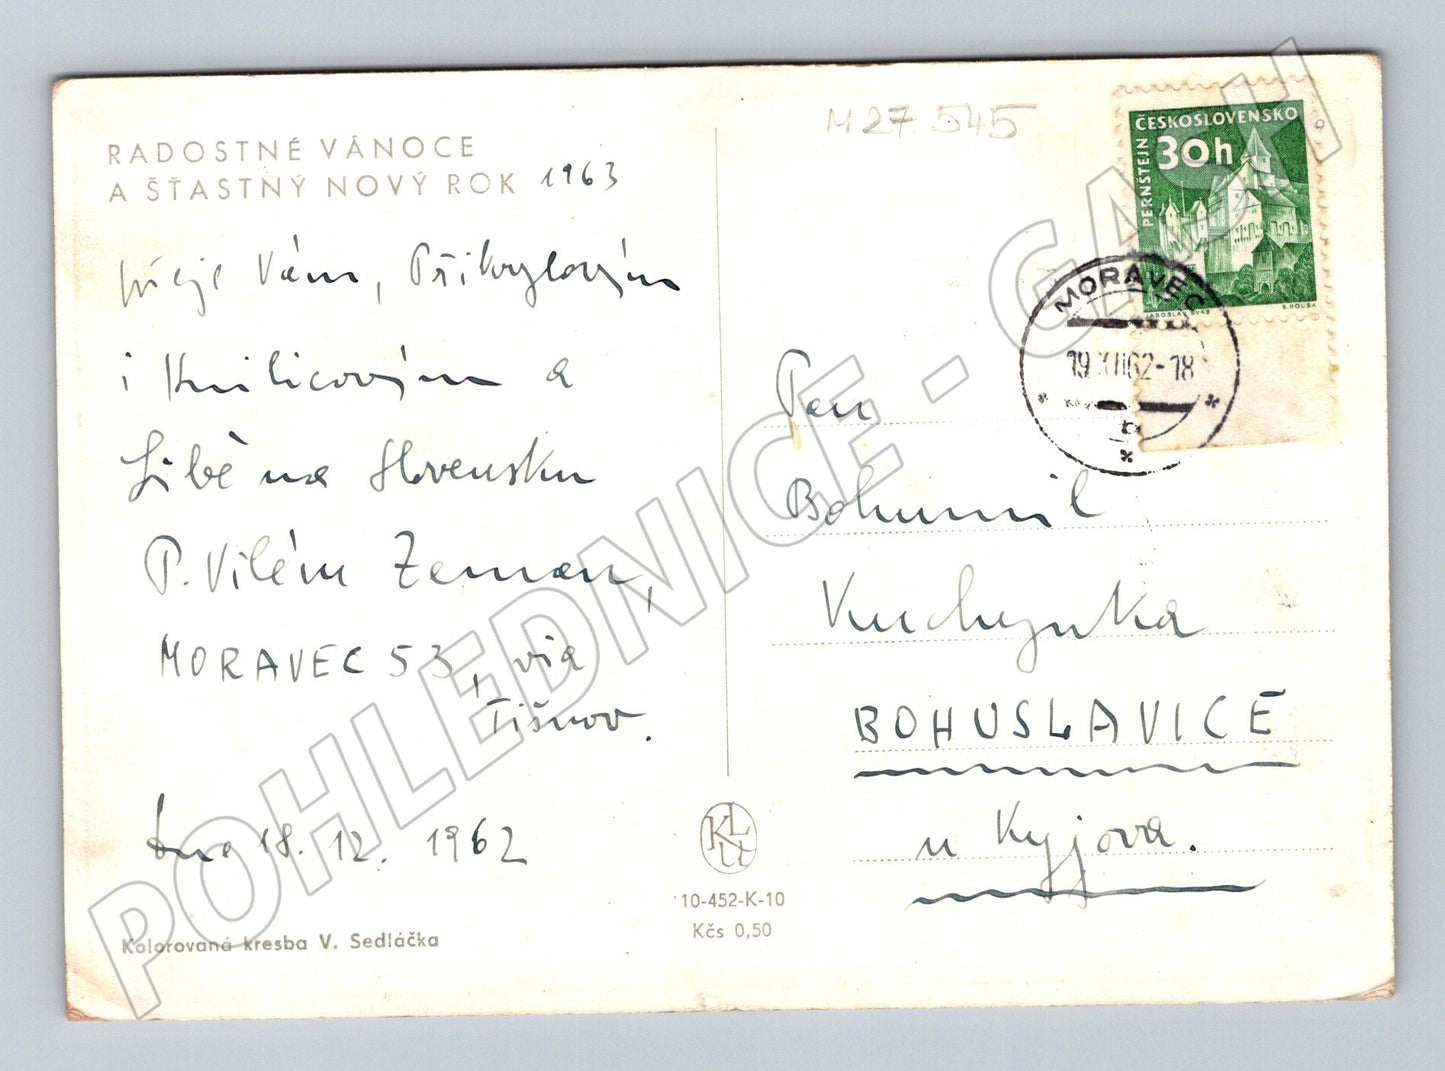 RADOSTNÉ VÁNOCE
A ŠŤASTNÝ NOVÝ ROK 1963
přeje Vám, Přikrylovým
i Knilicovým a
Libě na Slovensku
P. Vilém Zeman,
MORAVEC 53, via
Tišnov.
Dne 18. 12. 1962
Kolorovaná kresba V. Sedláčka
KLU
10-452-K-10
Kčs 0,50
M27 545
ČESKOSLOVENSKO
PERNŠTEJN
30h
JAROSLAV ŠVÁB
B. HOUSA
MORAVEC
19.XII.62-18
Pan
Bohumil
Kuchyňka
BOHUSLAVICE
u Kyjova.
POHLEDNICE - GASH